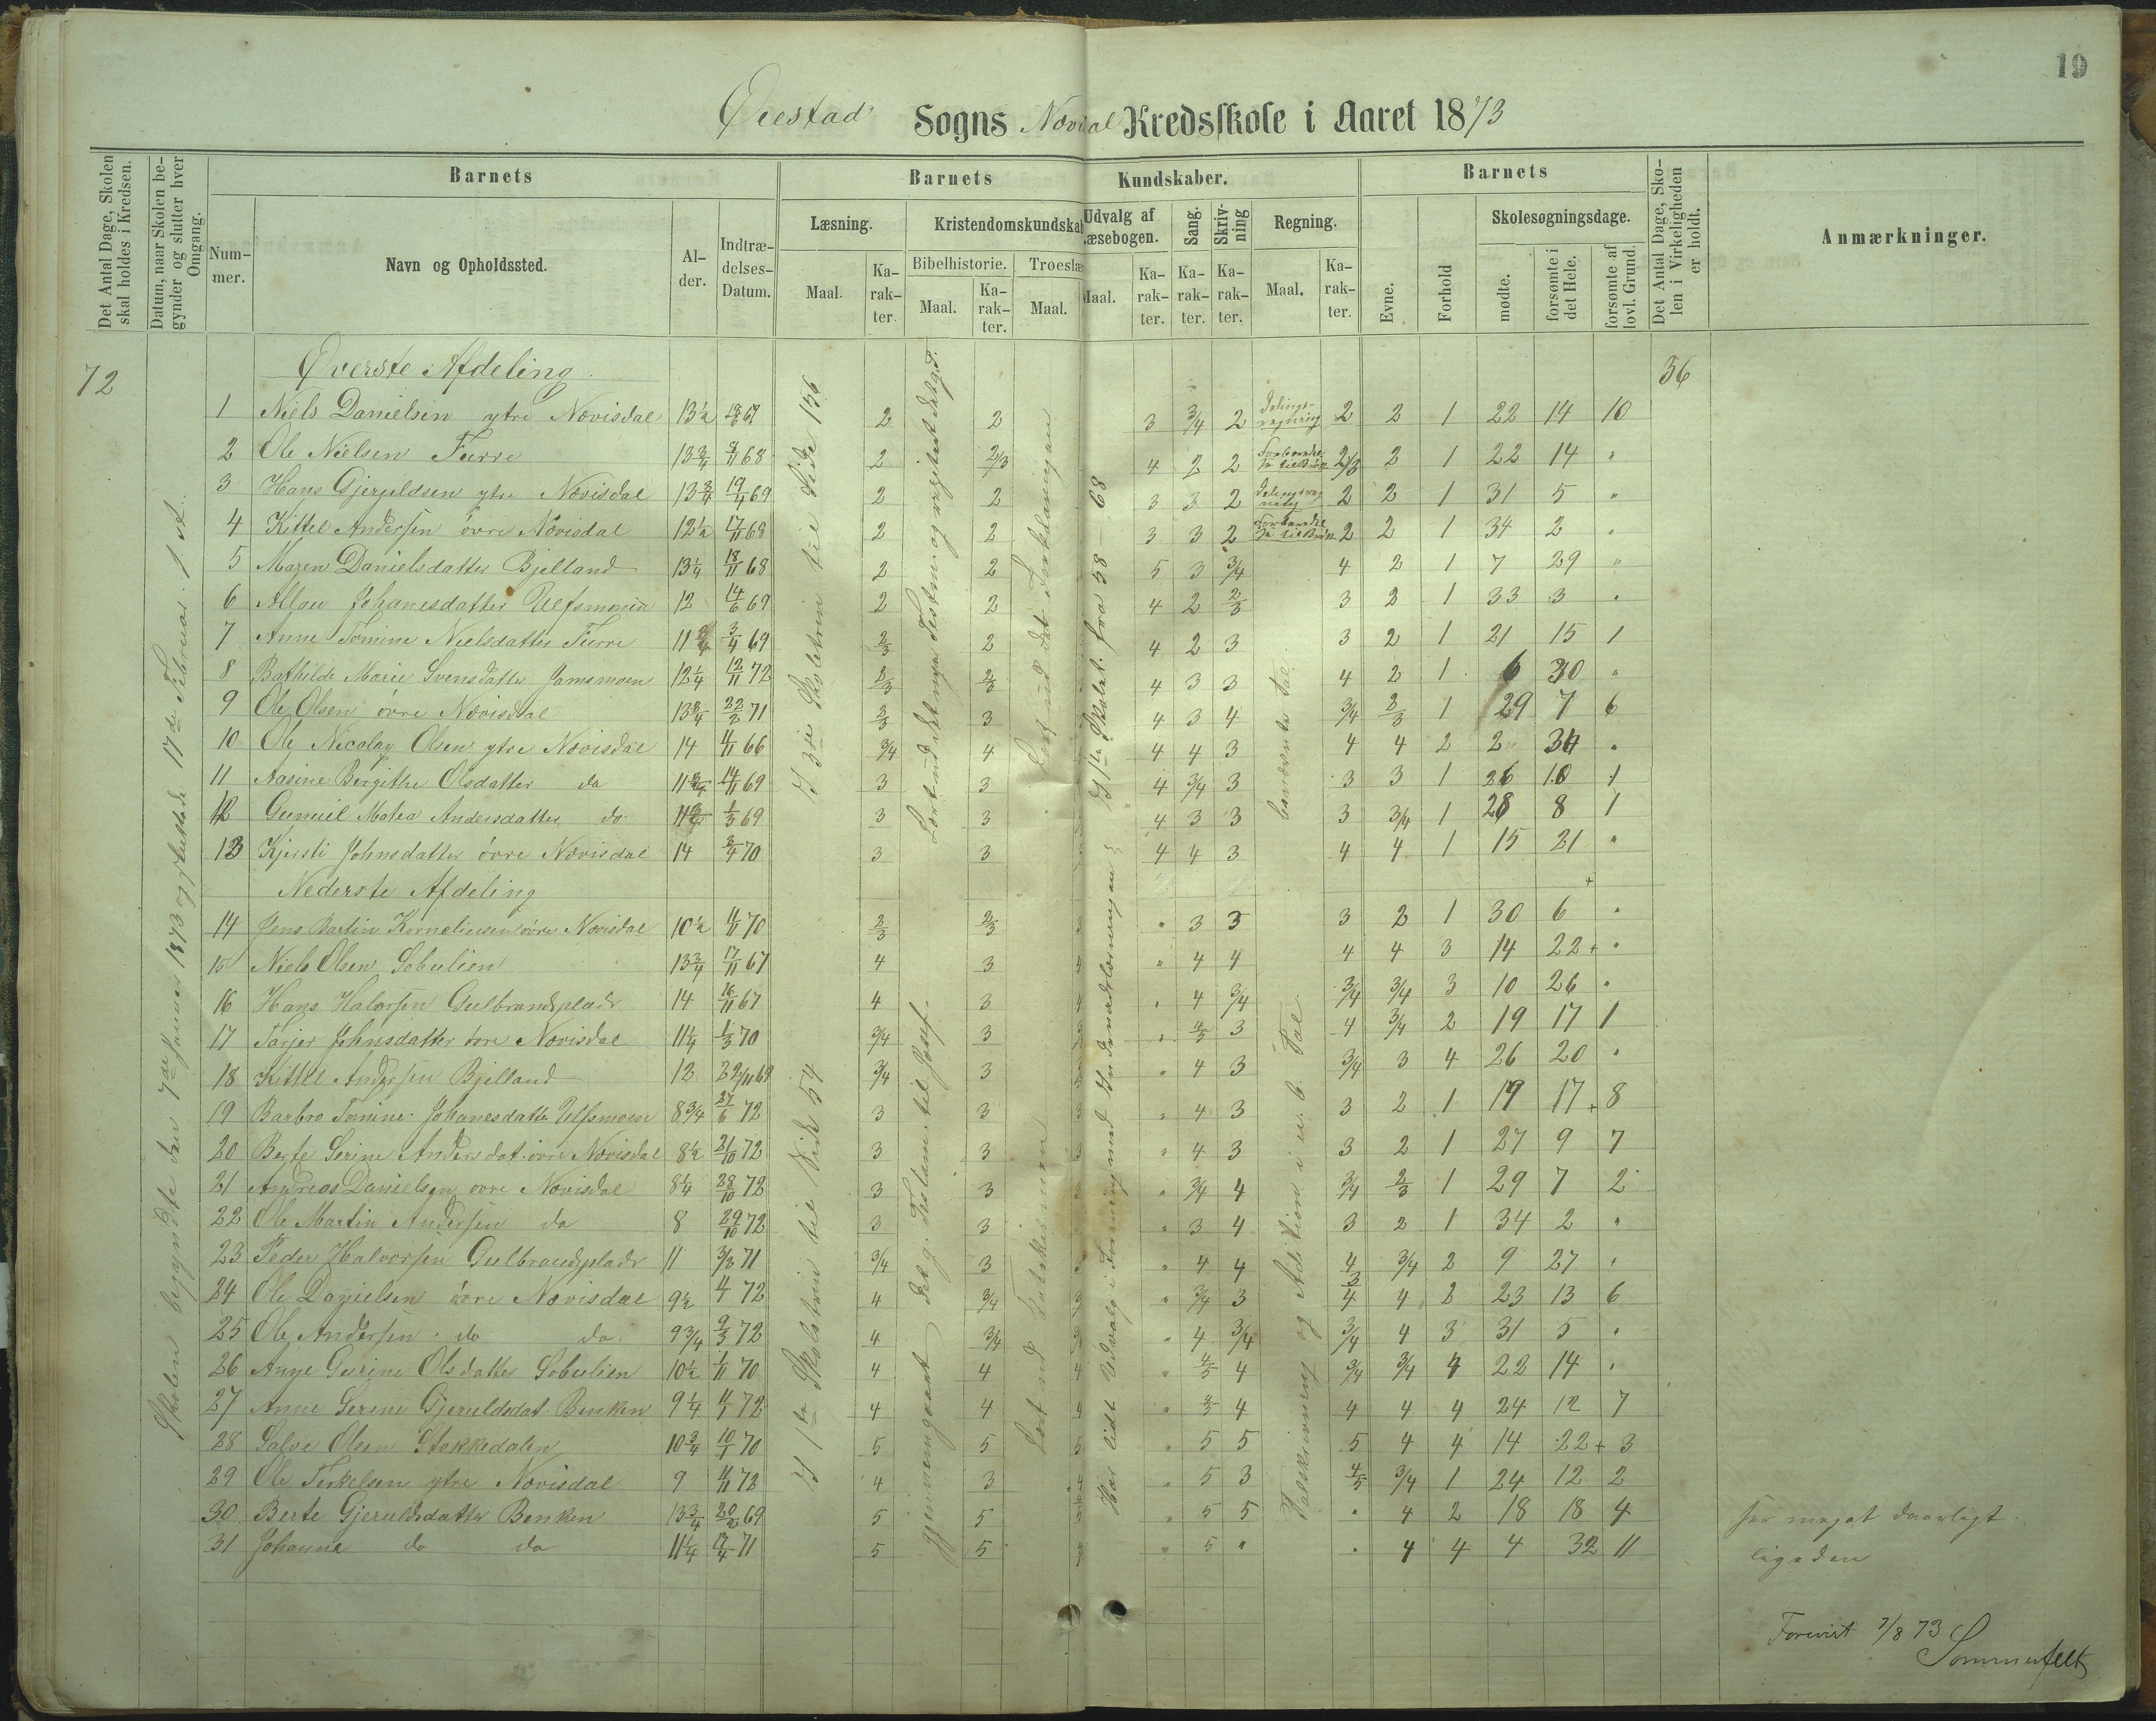 19
Øiestad Sogns Novidal Kredsskole i Aaret 1873
Det Antal Dage, Skolen skal holdes i Kredsen.
Datum, naar Skolen begynder og slutter hver Omgang.
Barnets
Nummer.
Navn og Opholdssted.
Alder.
Indtrædelses-Datum.
Barnets Kundskaber.
Læsning.
Maal.
Karakter.
Kristendomskundskab
Bibelhistorie.
Maal.
Karakter.
Troeslæ
Maal.
Udvalg af Læsebogen.
Maal.
Karakter.
Sang.
Karakter.
Skrivning
Karakter.
Regning.
Maal.
Karakter.
Barnets
Evne.
Forhold
Skolesøgningsdage.
mødte.
forsømte i det Hele.
forsømte af lovl. Grund.
Det Antal Dage, Skolen i Virkeligheden er holdt.
Anmærkninger.
72
Skolen begyndte den 7de Januar 1873 og sluttede 17de Februar s. A.
36
Øverste Afdeling
1 Niels Danielsen ytre Novisdal 13½ 2 2 3 3/4 2 Delingsregning 2 2 1 22 14 10
2 Ole Nielsen Furre 13¾ 2 2/3 4 2 2 2/3 2 1 22 14 "
3 Hans Gjeruldsen ytre Novisdal 13¾ 19/4 69 2 2 3 3 2 2 2 1 31 5 "
4 Kittel Andersen övre Novisdal 12½ 17/11 68 2 2 3 3 2 2 2 1 34 2 "
5 Maren Danielsdatter Bjelland 13¼ 18/11 68 2 2 5 3 3/4 4 2 1 7 29 "
6 Johanesdatter Ulfsmoen 12 14/6 69 2 2 4 2 2/3 3 2 1 33 3 "
7 Anne Tomine Nielsdatter Furre 11 3/4 69 2/3 2 4 2 3 3 2 1 21 15 1
8 Bathilde Marie Svensdatter Jamsmoen 12¼ 12/11 72 2/3 2/3 4 3 3 4 2 1 6 30 "
9 Ole Olsen övre Novisdal 13¾ 22/2 71 2/3 3 4 3 4 3/4 2/3 1 29 7 6
10 Ole Nicolay Olsen ytre Novisdal 14 4/11 66 3/4 4 4 4 3 4 4 2 2 34 "
11 Aasine Bergithe Olsdatter do 11¾ 14/11 69 3 3 4 3/4 3 3 3 1 26 10 1
12 Gunuil Matea Andersdatter do 1/3 69 3 3 4 3 3 3 3/4 1 28 8 1
13 Kjersti Johnsdatter övre Novisdal 14 3/4 70 3 3 4 4 3 4 4 1 15 21 "
Nederste Afdeling
14 Jens Bertin Korneliusen övre Novisdal 10½ 4/11 70 2/3 2/3 " 3 3 3 2 1 30 6 "
15 Niels Olsen Sobulien 13¾ 17/11 67 4 3 " 4 4 4 4 3 14 22+ "
16 Hans Halvorsen Gulbrandsplads 14 16/11 67 4 3 " 4 3/4 3/4 3/4 3 10 26 "
17 Tarjer Johnsdatter övre Novisdal 11¼ 1/3 70 3/4 3 " 4/5 3 4 3/4 2 19 17 1
18 Kittel Andersen Bjelland 12 3/4 3 " 4 3 3/4 3 4 26 20 "
19 Barbro Tomine Johanesdatter Ulfsmoen 8¾ 27/6 72 3 3 " 4 3 3 2 1 19 17+ 8
20 Berte Serine Andersdat. övre Novisdal 8½ 21/10 72 3 3 " 4 3 3 2 1 27 9 7
21 Andreas Danielsen ovre Novisdal 8¼ 28/10 72 3 3 " 3/4 4 3/4 2/3 1 29 7 2
22 Ole Martin Andersen do 8 29/10 72 3 3 " 3 4 3 2 1 34 2 "
23 Peder Halvorsen Gulbrandsplads 11 3/3 71 3/4 3 " 4 4 4 3/4 2 9 27 "
24 Ole Danielsen övre Novisdal 9½ 4/1 72 4 3/4 " 3/4 3 3/4 4 2 23 13 6
25 Ole Andersen do do 9¾ 9/3 72 4 3/4 " 4 3/4 3/4 4 3 31 5 "
26 Anne Gurine Olsdatter Sobulien 10½ 1/11 70 4 4 " 4/5 4 3/4 3/4 4 22 14 "
27 Anne Serine Gjeruldsdat. Benken 9¼ 72 4 4 " 4 4 4 4 24 12 7
28 Salve Olsen Stokkedalen 10¾ 10/1 70 5 5 " 5 5 5 4 4 14 22+ 3
29 Ole Terkelsen ytre Novisdal 9 4/11 72 4 3 " 5 3 4/5 3/4 1 24 12 2
30 Berte Gjeruldsdatter Benken 13¾ 20/2 69 5 5 " 5 5 " 4 2 18 18 4
31 Johanna do do 11¼ 71 5 5 " 5 " " 4 4 4 32 11
I 3die Skoletrin til Side 136
I 1ste Skoletrin til Side 54
Lært ud det nye Testm. og
gjennemgaaet det g. Testam. til Josef.
Lært ud det Forklaringen
Lært ud Katekismen
I 1ste Skolet. fra 58 - 68
Har lidt Udvalg i Forening med Indenadlæsningen
benævnte Tal
Talskrivning og Adition i ub. Tal
meget daarligt
ligedan
Forevist 7/8 73
Sommerfelt